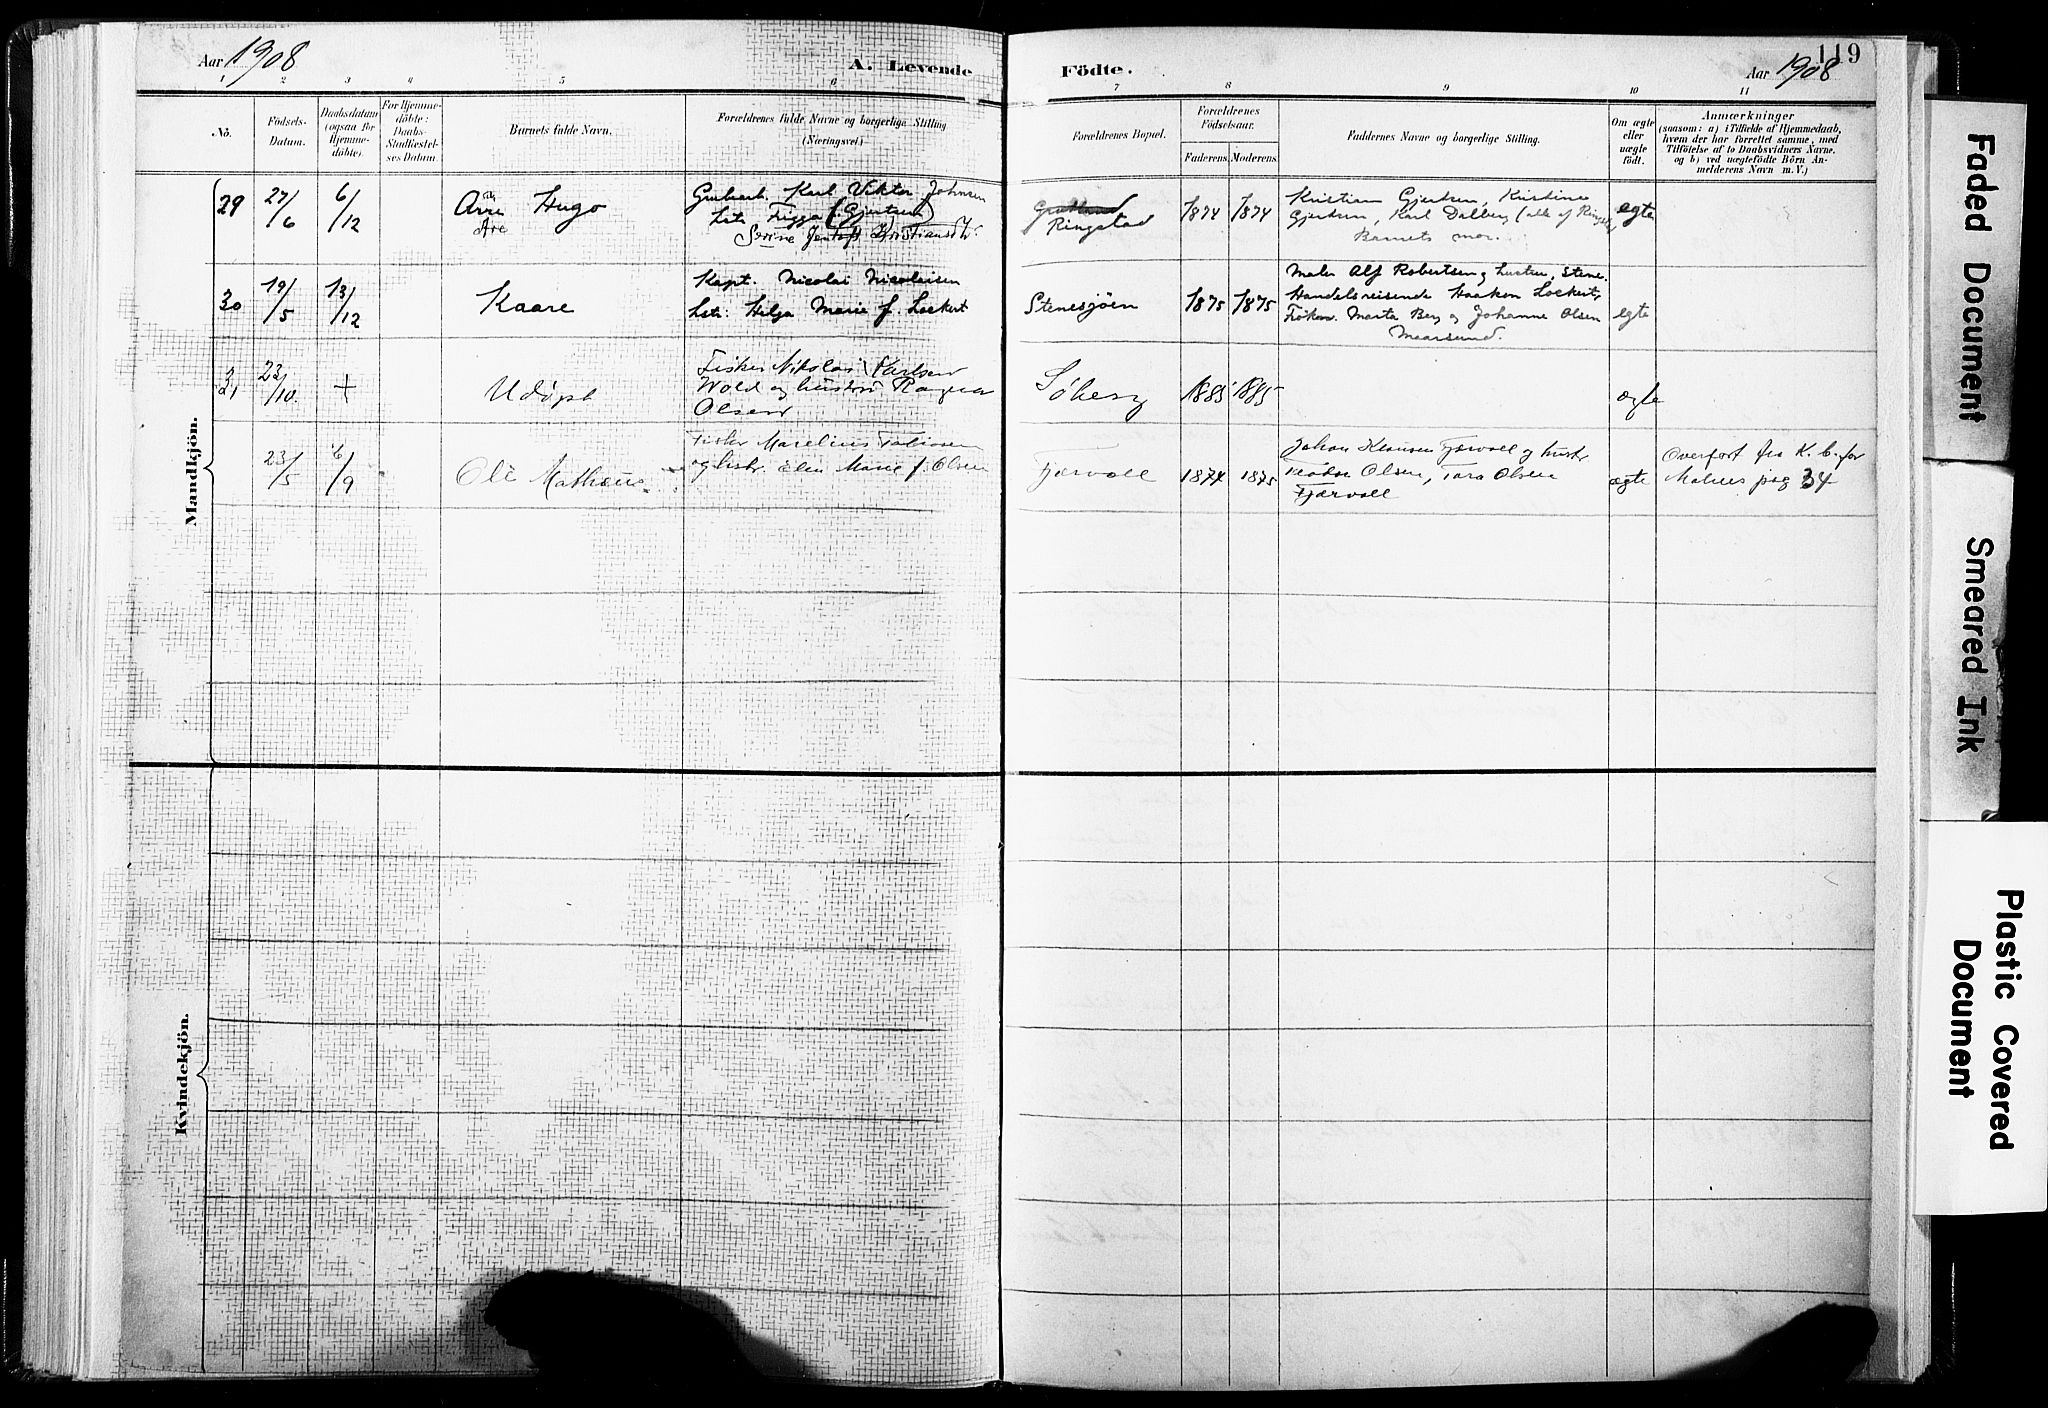 Aar 1908
A. Levende
Födte.
Aar 1908
119
1 2 3 4 5 6 7 8 9 10 11
Nö.
Födsels-
Datum.
Daabsdatum
(ogsaa for
Hjemme-
döbte).
For Hjemme-
döbte:
Daabs-
Stadfæstel-
ses Datum.
Barnets fulde Navn.
Forældrenes fulde Navne og borgerlige Stilling
(Næringsvei.)
Forældrenes Bopæl.
Forældrenes
Födselsaar.
Faderens. Moderens.
Faddernes Navne og borgerlige Stilling.
Om ægte
eller
uægte
födt.
Anmærkninger
(saasom: a) i Tilfælde af Hjemmedaab,
hvem der har forrettet samme, med
Tilföielse af to Daabsvidners Navne,
og b) ved uægtefödte Börn An-
melderens Navn m. V.)
Mandkjön.
29
27/6
6/12
Hugo
Are
Karl Viktor Johnsen
Frigga f. Gjertsen
Ringstad
1874 1874
Kristian Gjertsen, Kristine
Gjertsen, Karl Dalberg (alle af
Barnets mor.
egte
30
19/5
13/12
Kaare
Kapt. Nicolai Nicolaisen
Helga Marie f. Lockert
Stenesjöen
1875 1875
Maler Alf Robertsen og hustru, Stene.
Handelsreisende Haakon Lockert,
Fröken Marta Berg og Johanne Olsen
egte
31
23/10
+
Udöpt
Fisker Nikolai Karlsen
Wold og hustru Ragna
Olsen
Söberg
1885 1885
ægte
23/5
6/9
Ole Mathæus
Fisker Marelius
og hstr. Elen Marie f. Olsen
Fjærvoll
1874 1875
Johan Klausen Fjærvoll og hustr
Olsen, Tara Olsen
Fjærvoll
ægte
Overfört fra K. b. for
Malnes pag 34
Kvindekjön.
Faded Document
Smeared Ink
Plastic Covered
Document